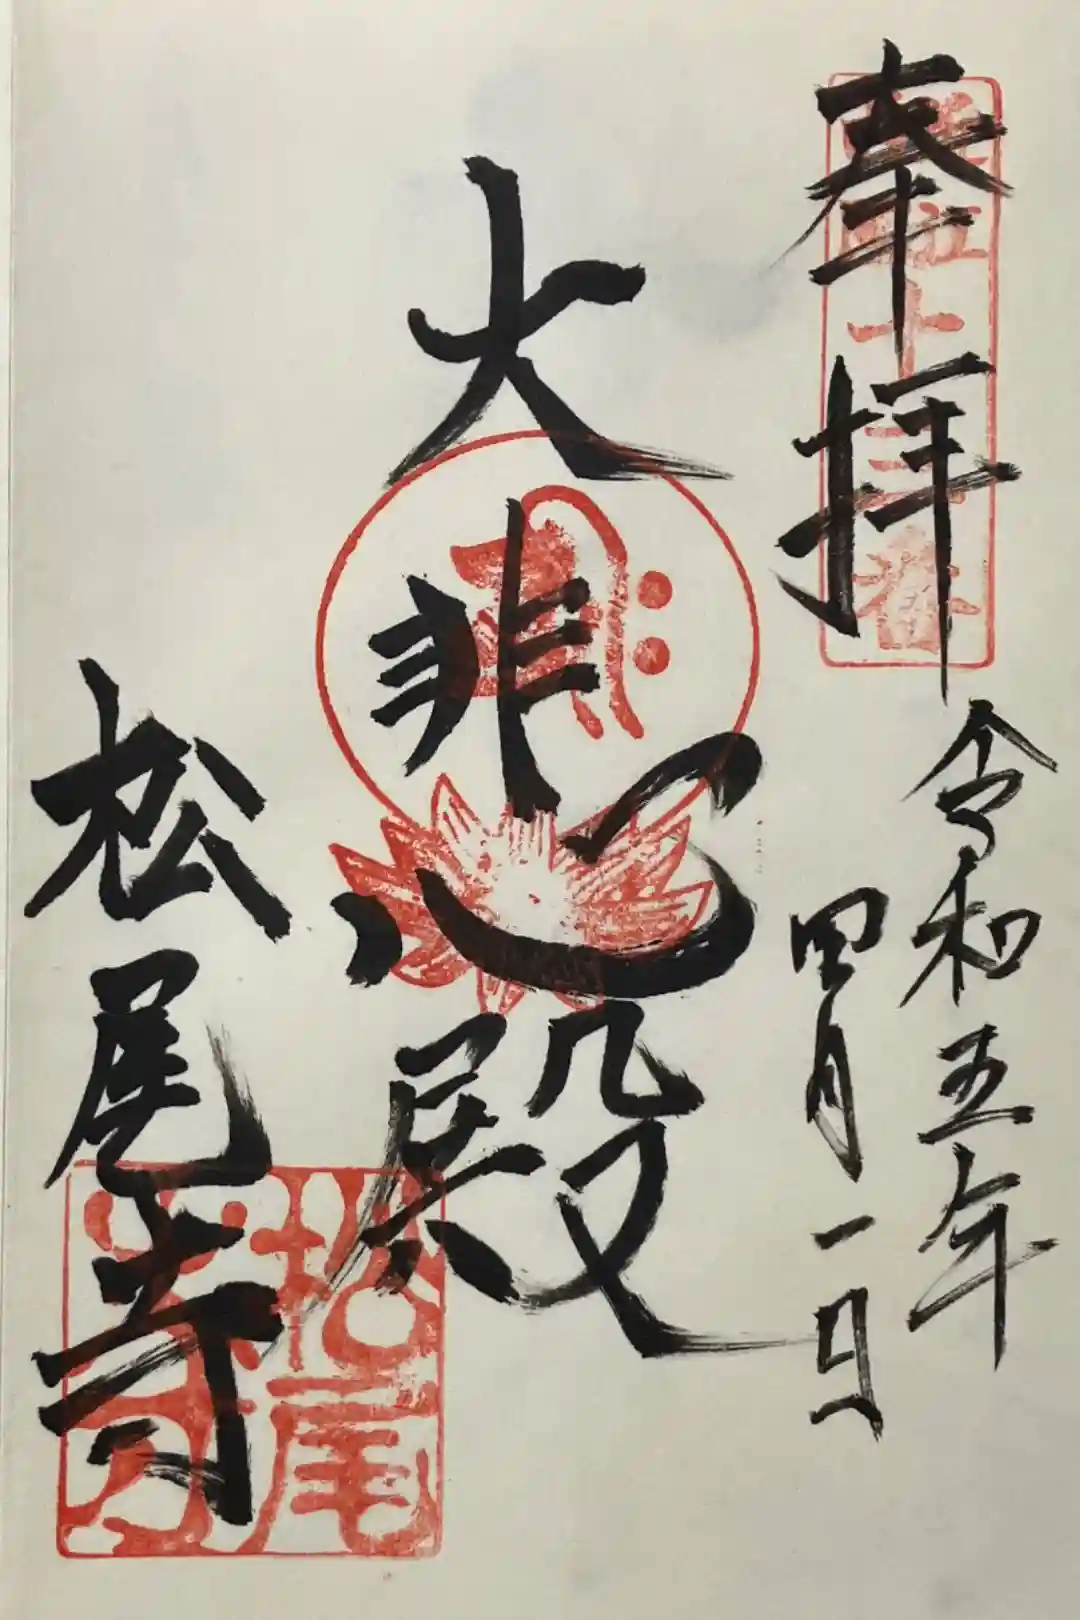 奉拝
令和五年
四月一日
大悲殿
松尾寺
松尾